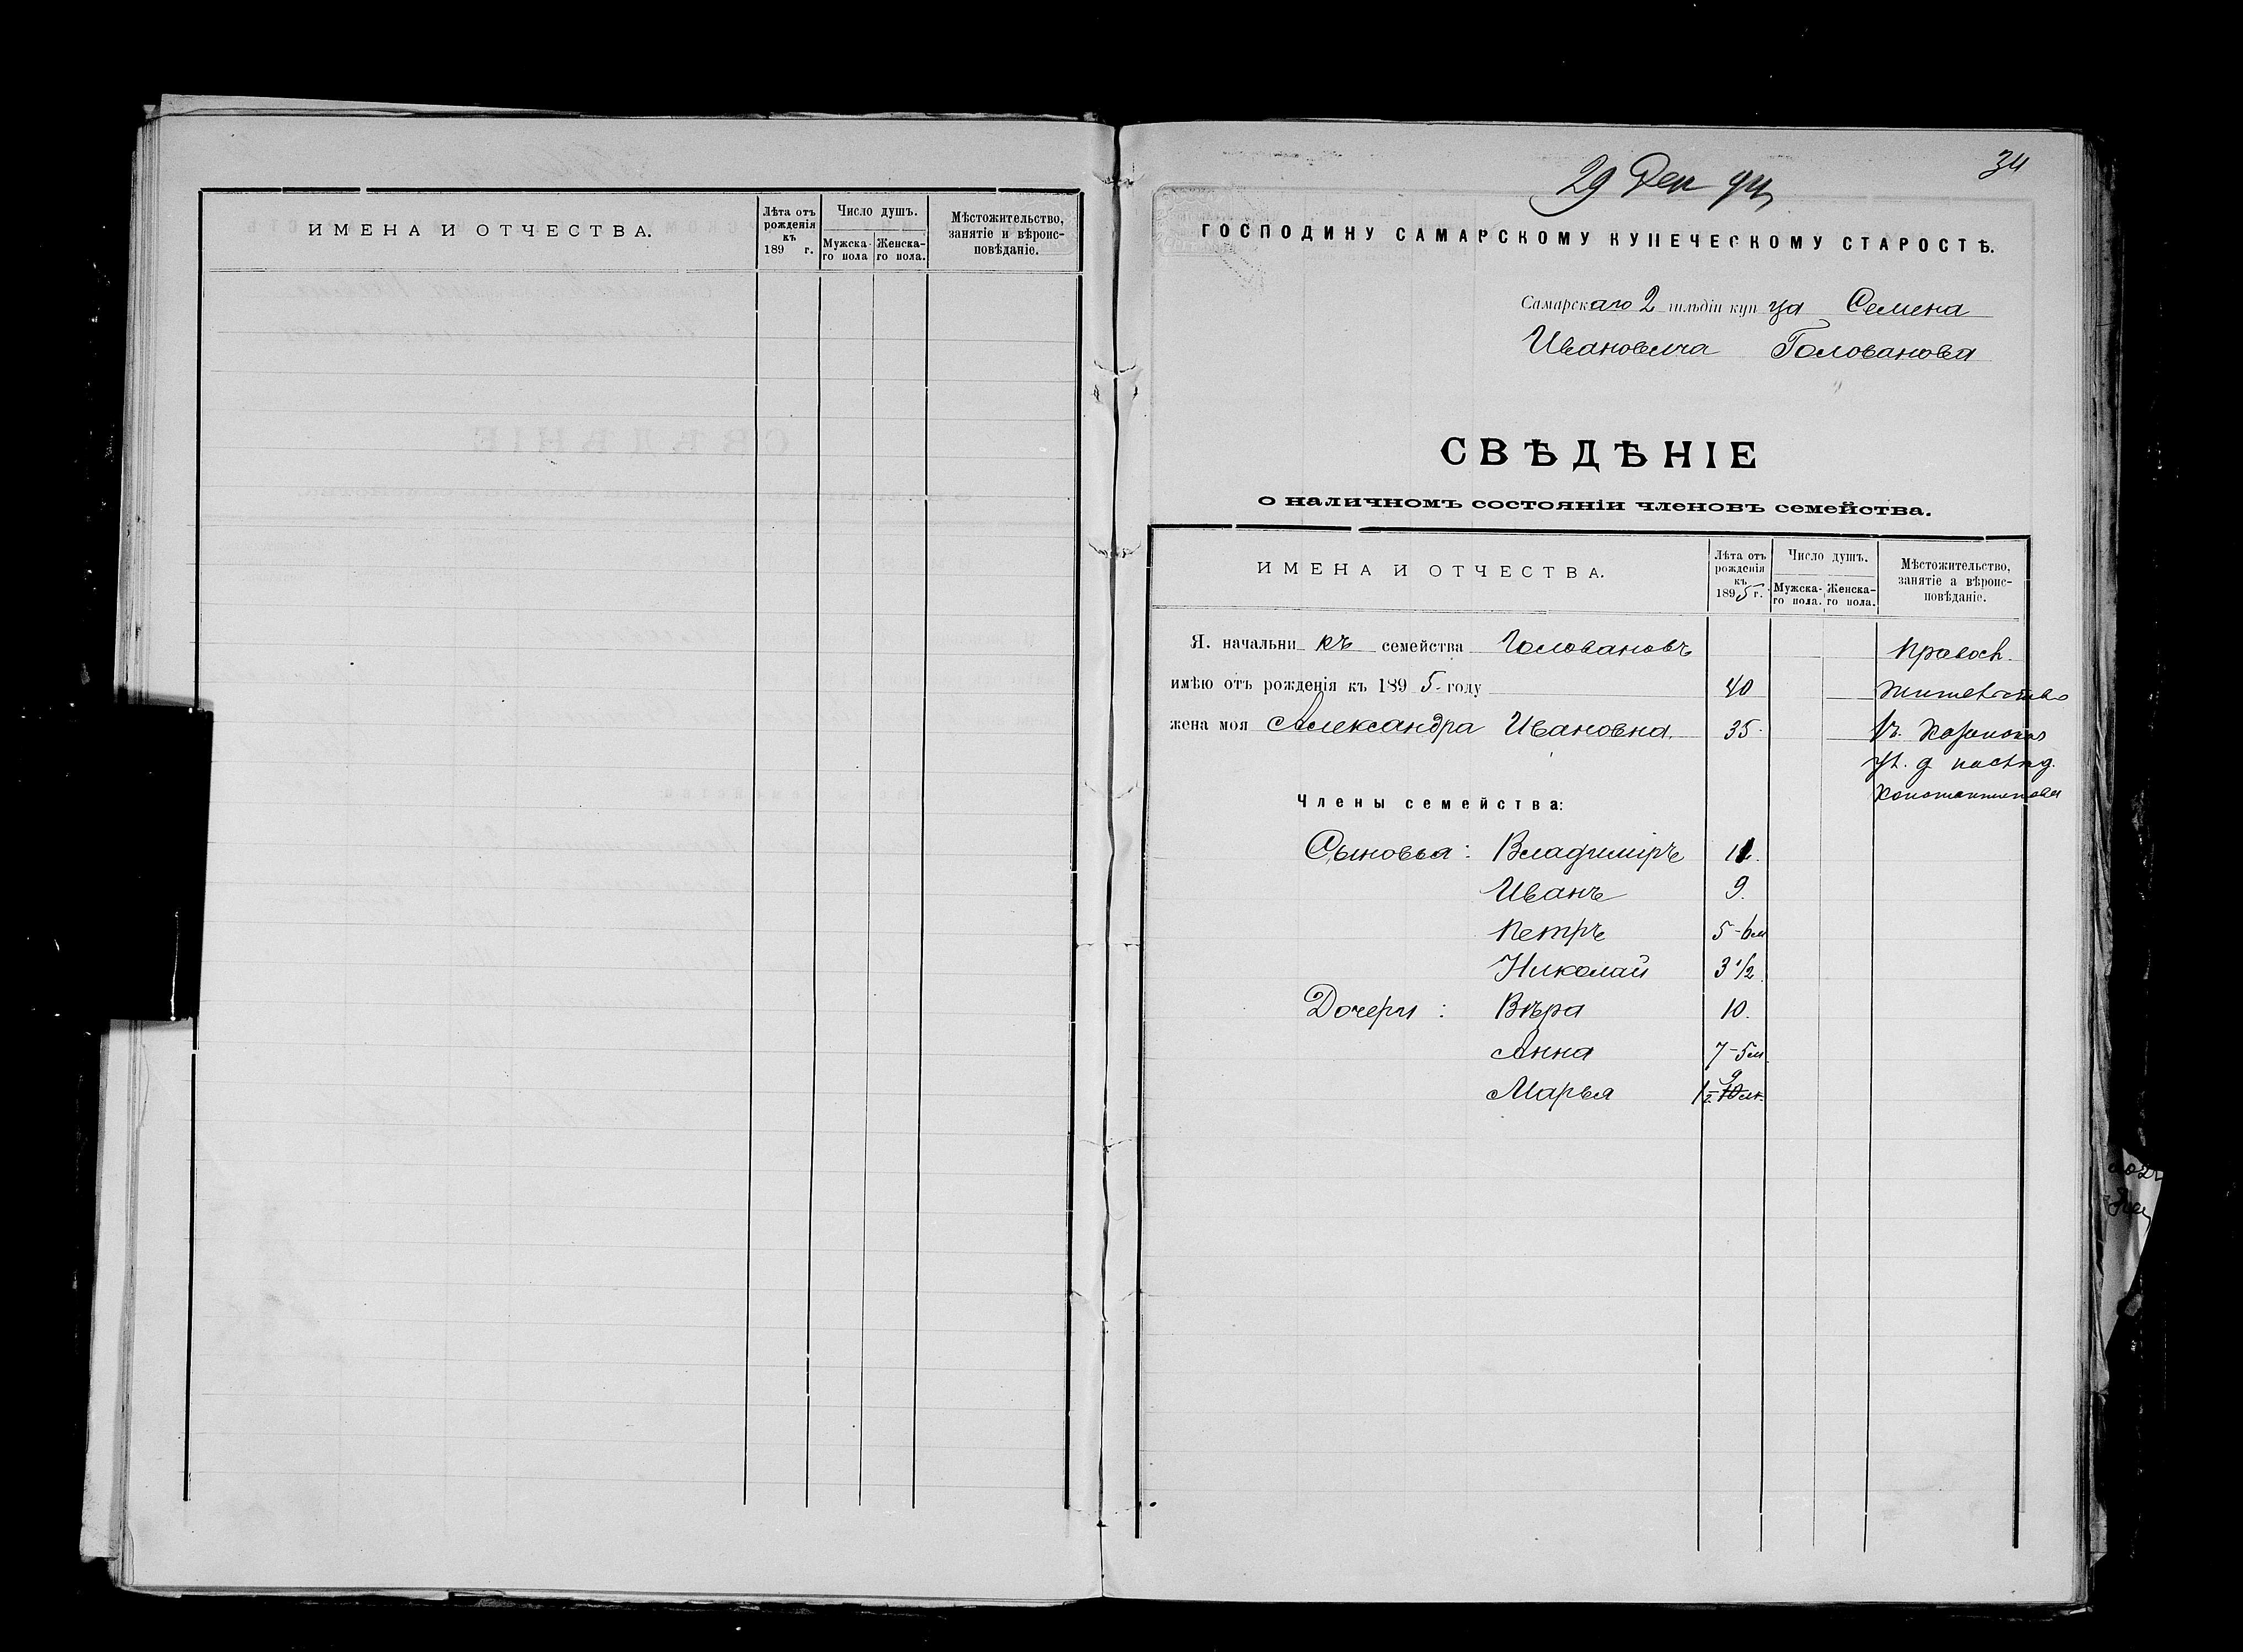 ИМЕНА И ОТЧЕСТВА.
Лѣта отъ рожденія къ 189 г.
Число душъ.
Мужска-го пола
Женска-го пола.
Мѣстожительство, занятіе и вѣроис-повѣданіе.
34
29 Дек 94
ГОСПОДИНУ САМАРСКОМУ КУПЕЧЕСКОМУ СТАРОСТѢ.
Самарскаго 2 гильдіи купца Семена
Ивановича Голованова
СВѢДѢНІЕ
о наличномъ состояніи членовъ семейства.
ИМЕНА И ОТЧЕСТВА.
Лѣта отъ рожденія къ 1895 г.
Число душъ.
Мужска-го пола.
Женска-го пола.
Мѣстожительство, занятіе а вѣроис-повѣданіе.
Я. начальникъ семейства Головановъ Правосл.
имѣю отъ рожденія къ 1895 году 40 жительство
жена моя Александра Ивановна. 35
въ
ул. д наслѣд.
Константинова
Члены семейства:
Сыновья: Владиміръ
Иванъ 9.
Петръ 5-6м
Николай 3 1/2
Дочери: Вѣра 10.
Анна 7-5м
Марья